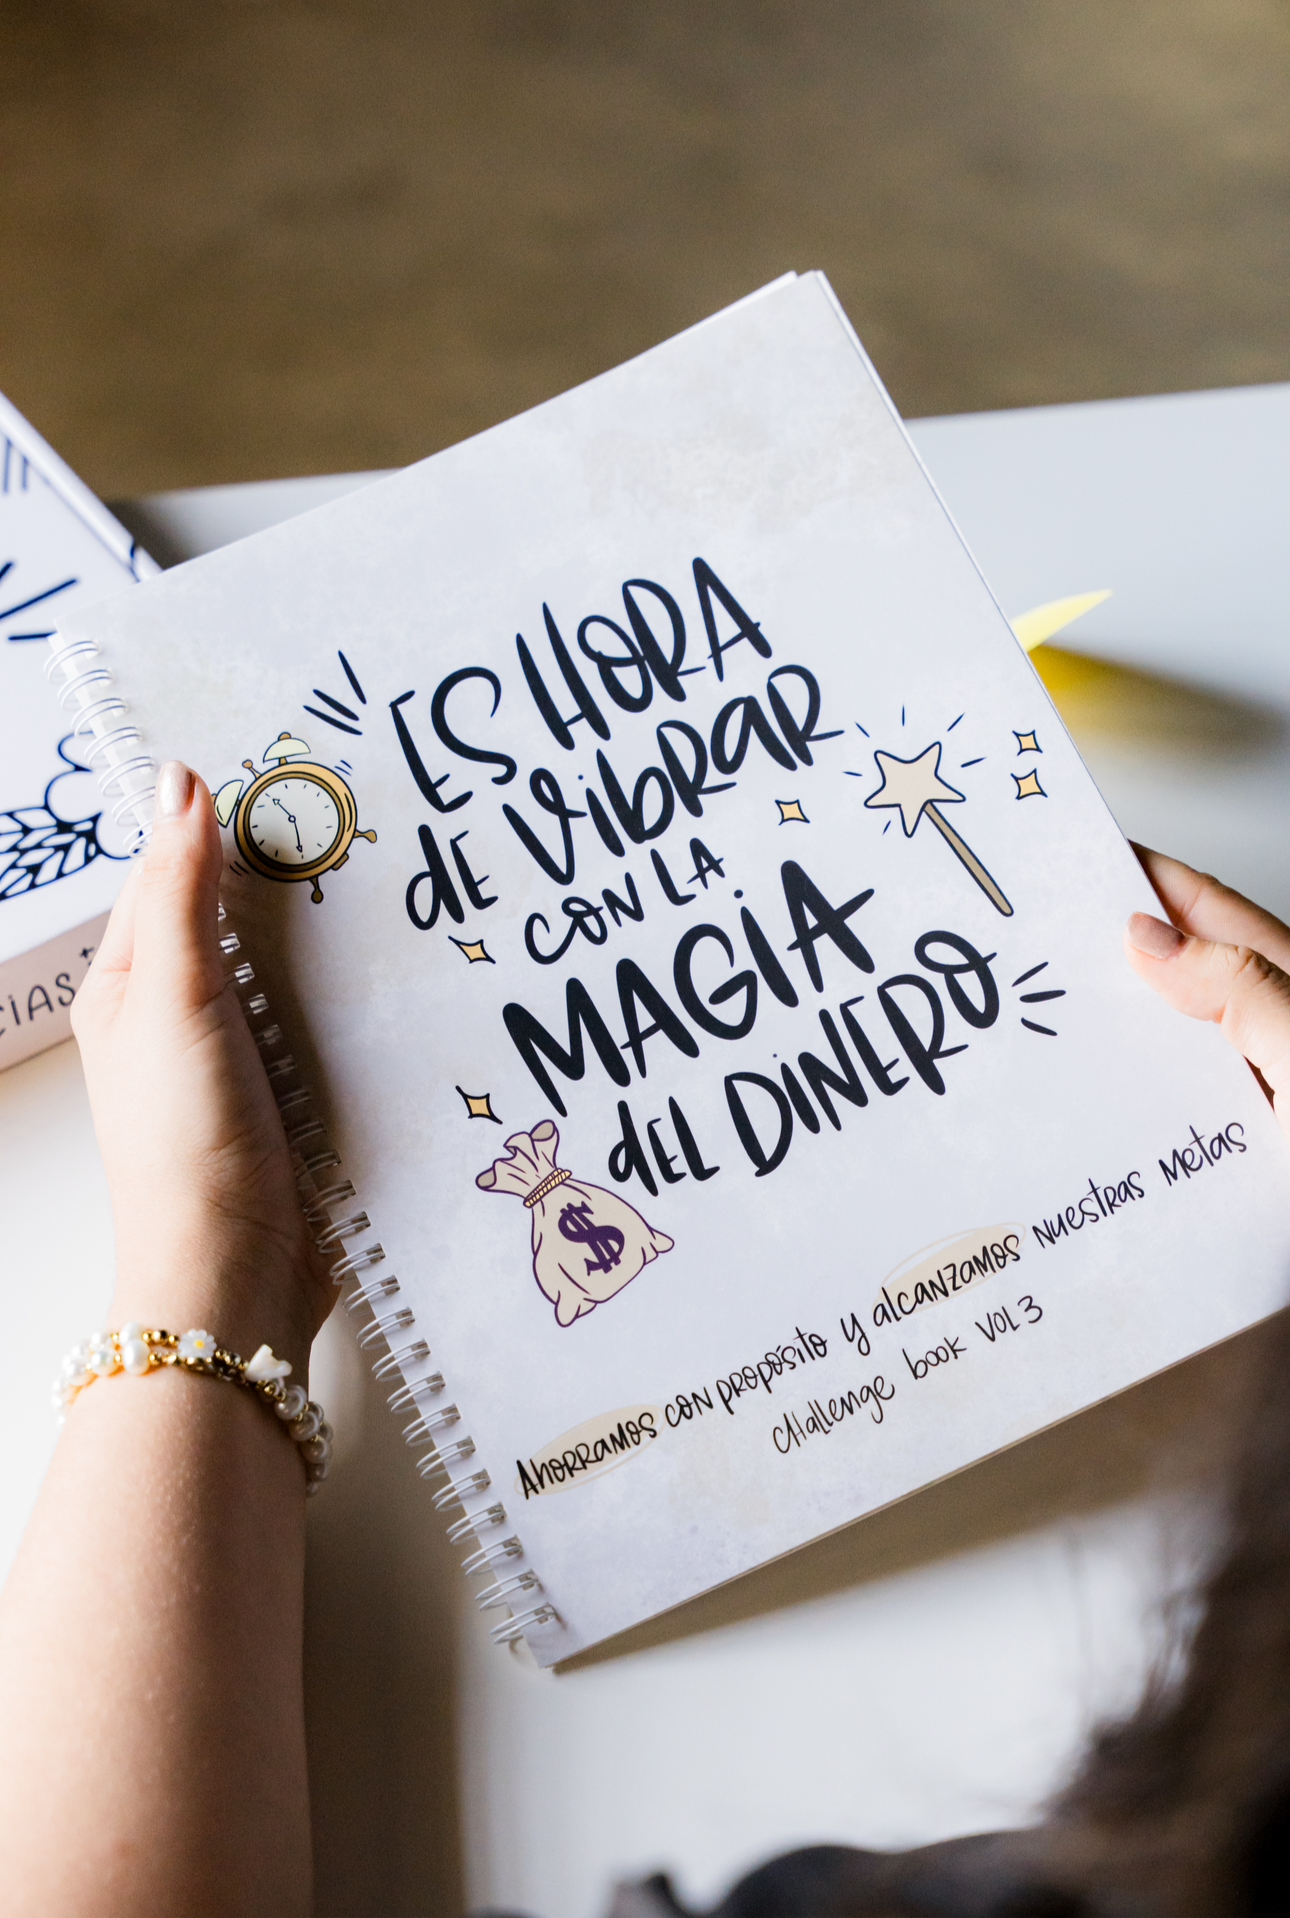 ES HORA
DE VIBRAR
CON LA
MAGIA
DEL DINERO
$
Ahorramos con propósito y alcanzamos nuestras metas
Challenge book VOL 3